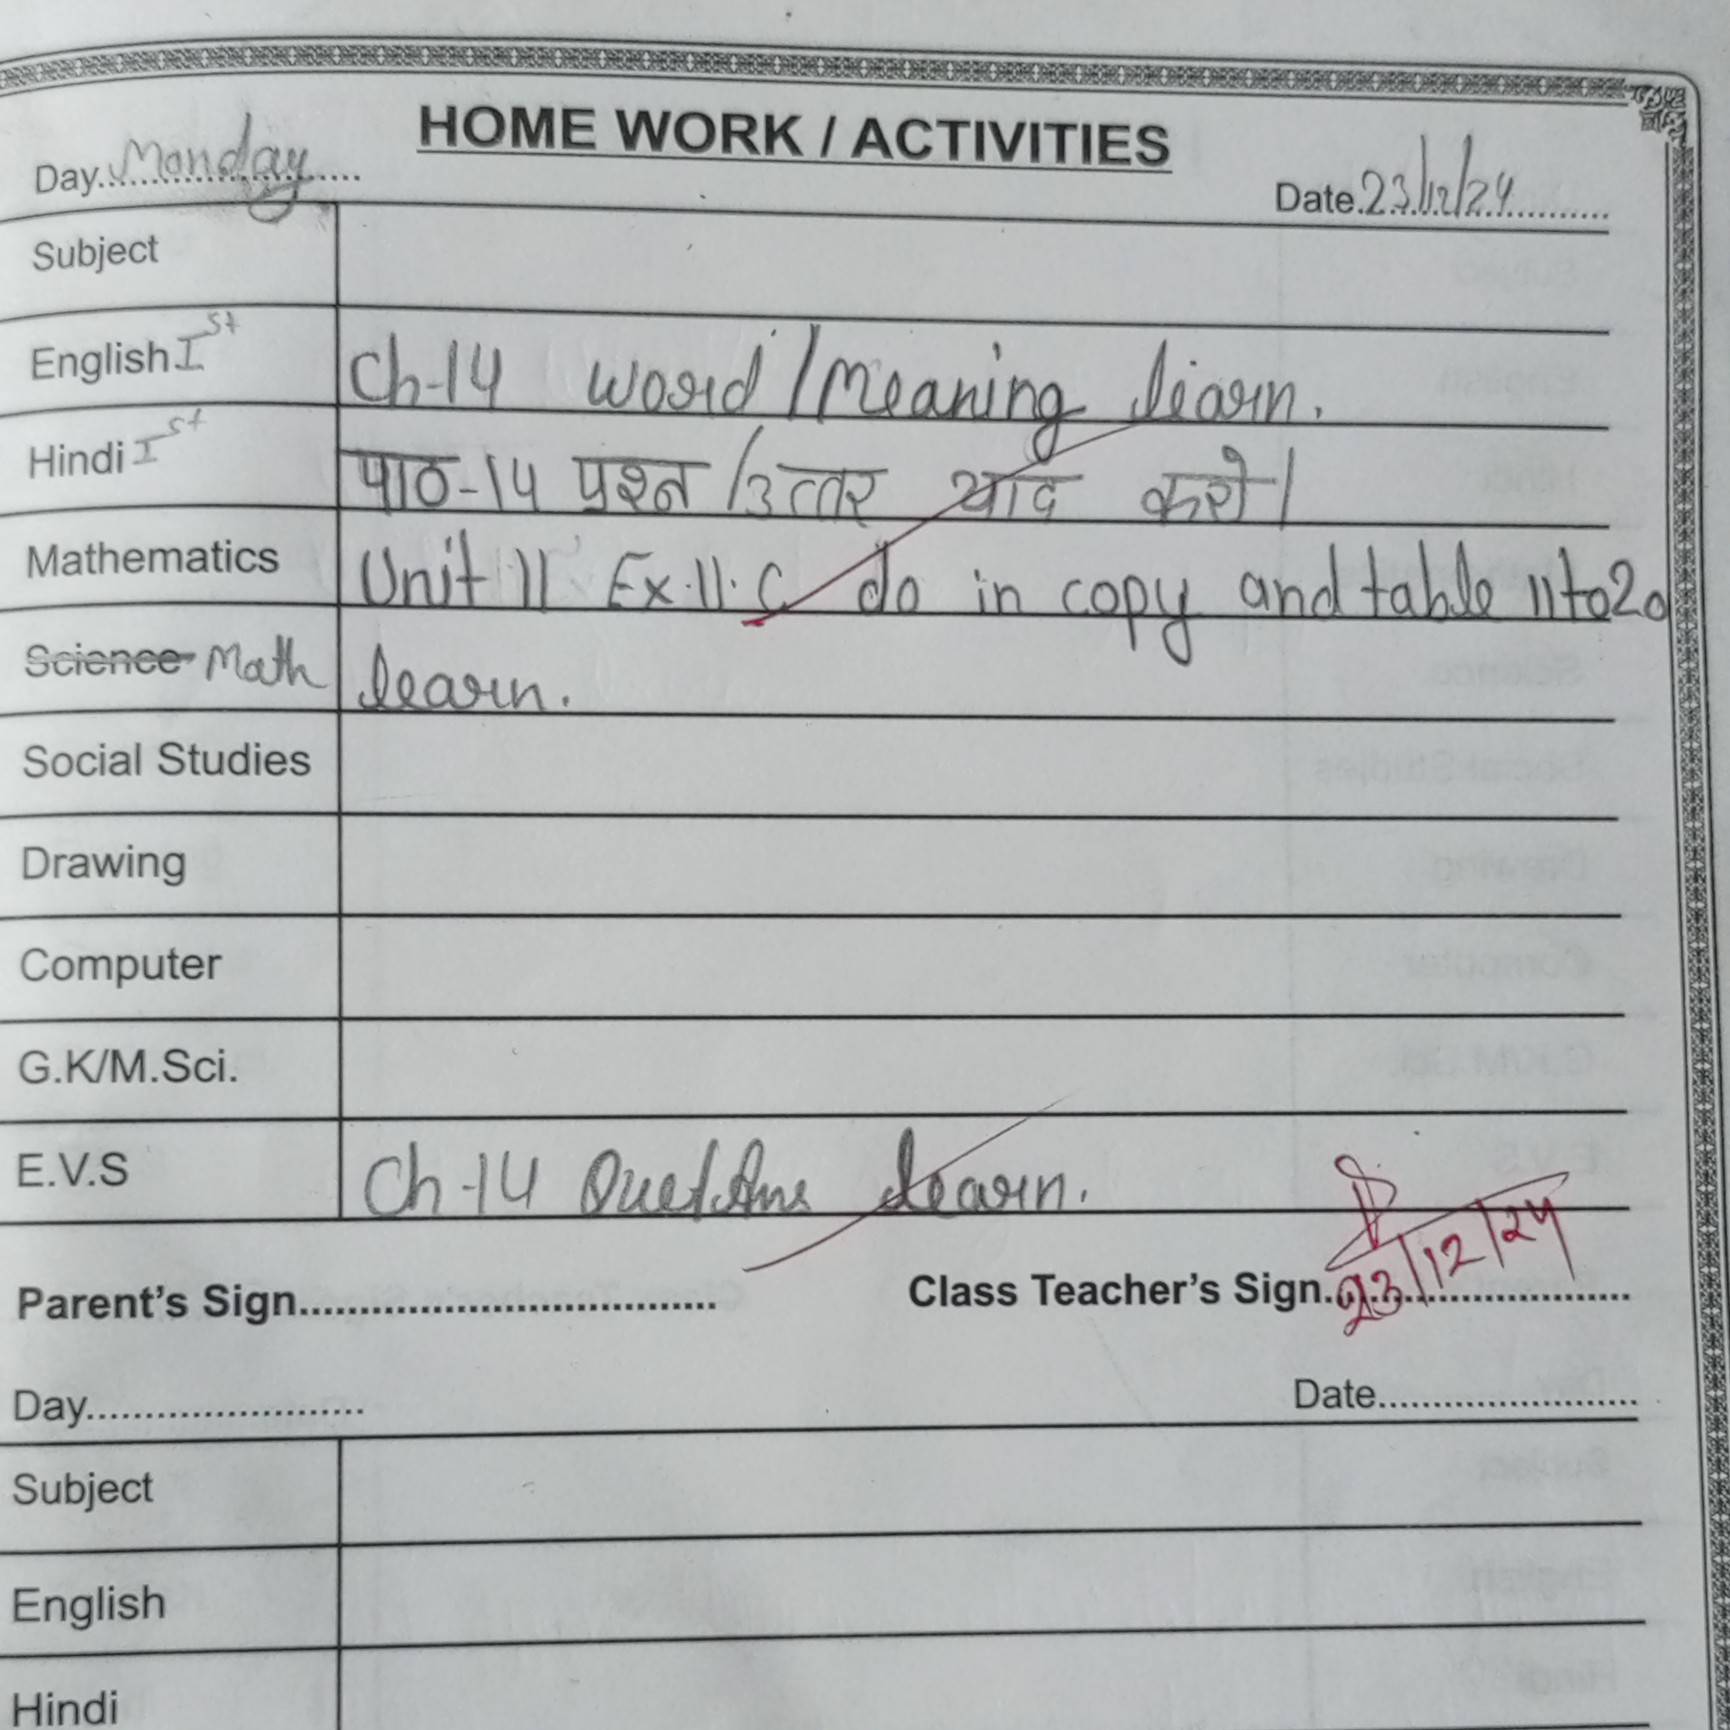 HOME WORK / ACTIVITIES
Day..Monday.... Date.23/12/24
Subject
English Ist Ch-14 word/Meaning learn.
Hindi Ist पाठ-14 प्रश्न/उत्तर याद करो।
Mathematics Unit 11 Ex.11.C do in copy and table 11 to 20
Science Math learn.
Social Studies
Drawing
Computer
G.K/M.Sci.
E.V.S Ch-14 Que/Ans learn.
Parent's Sign.................................... Class Teacher's Sign. 23/12/24
Day........................ Date.......................
Subject
English
Hindi